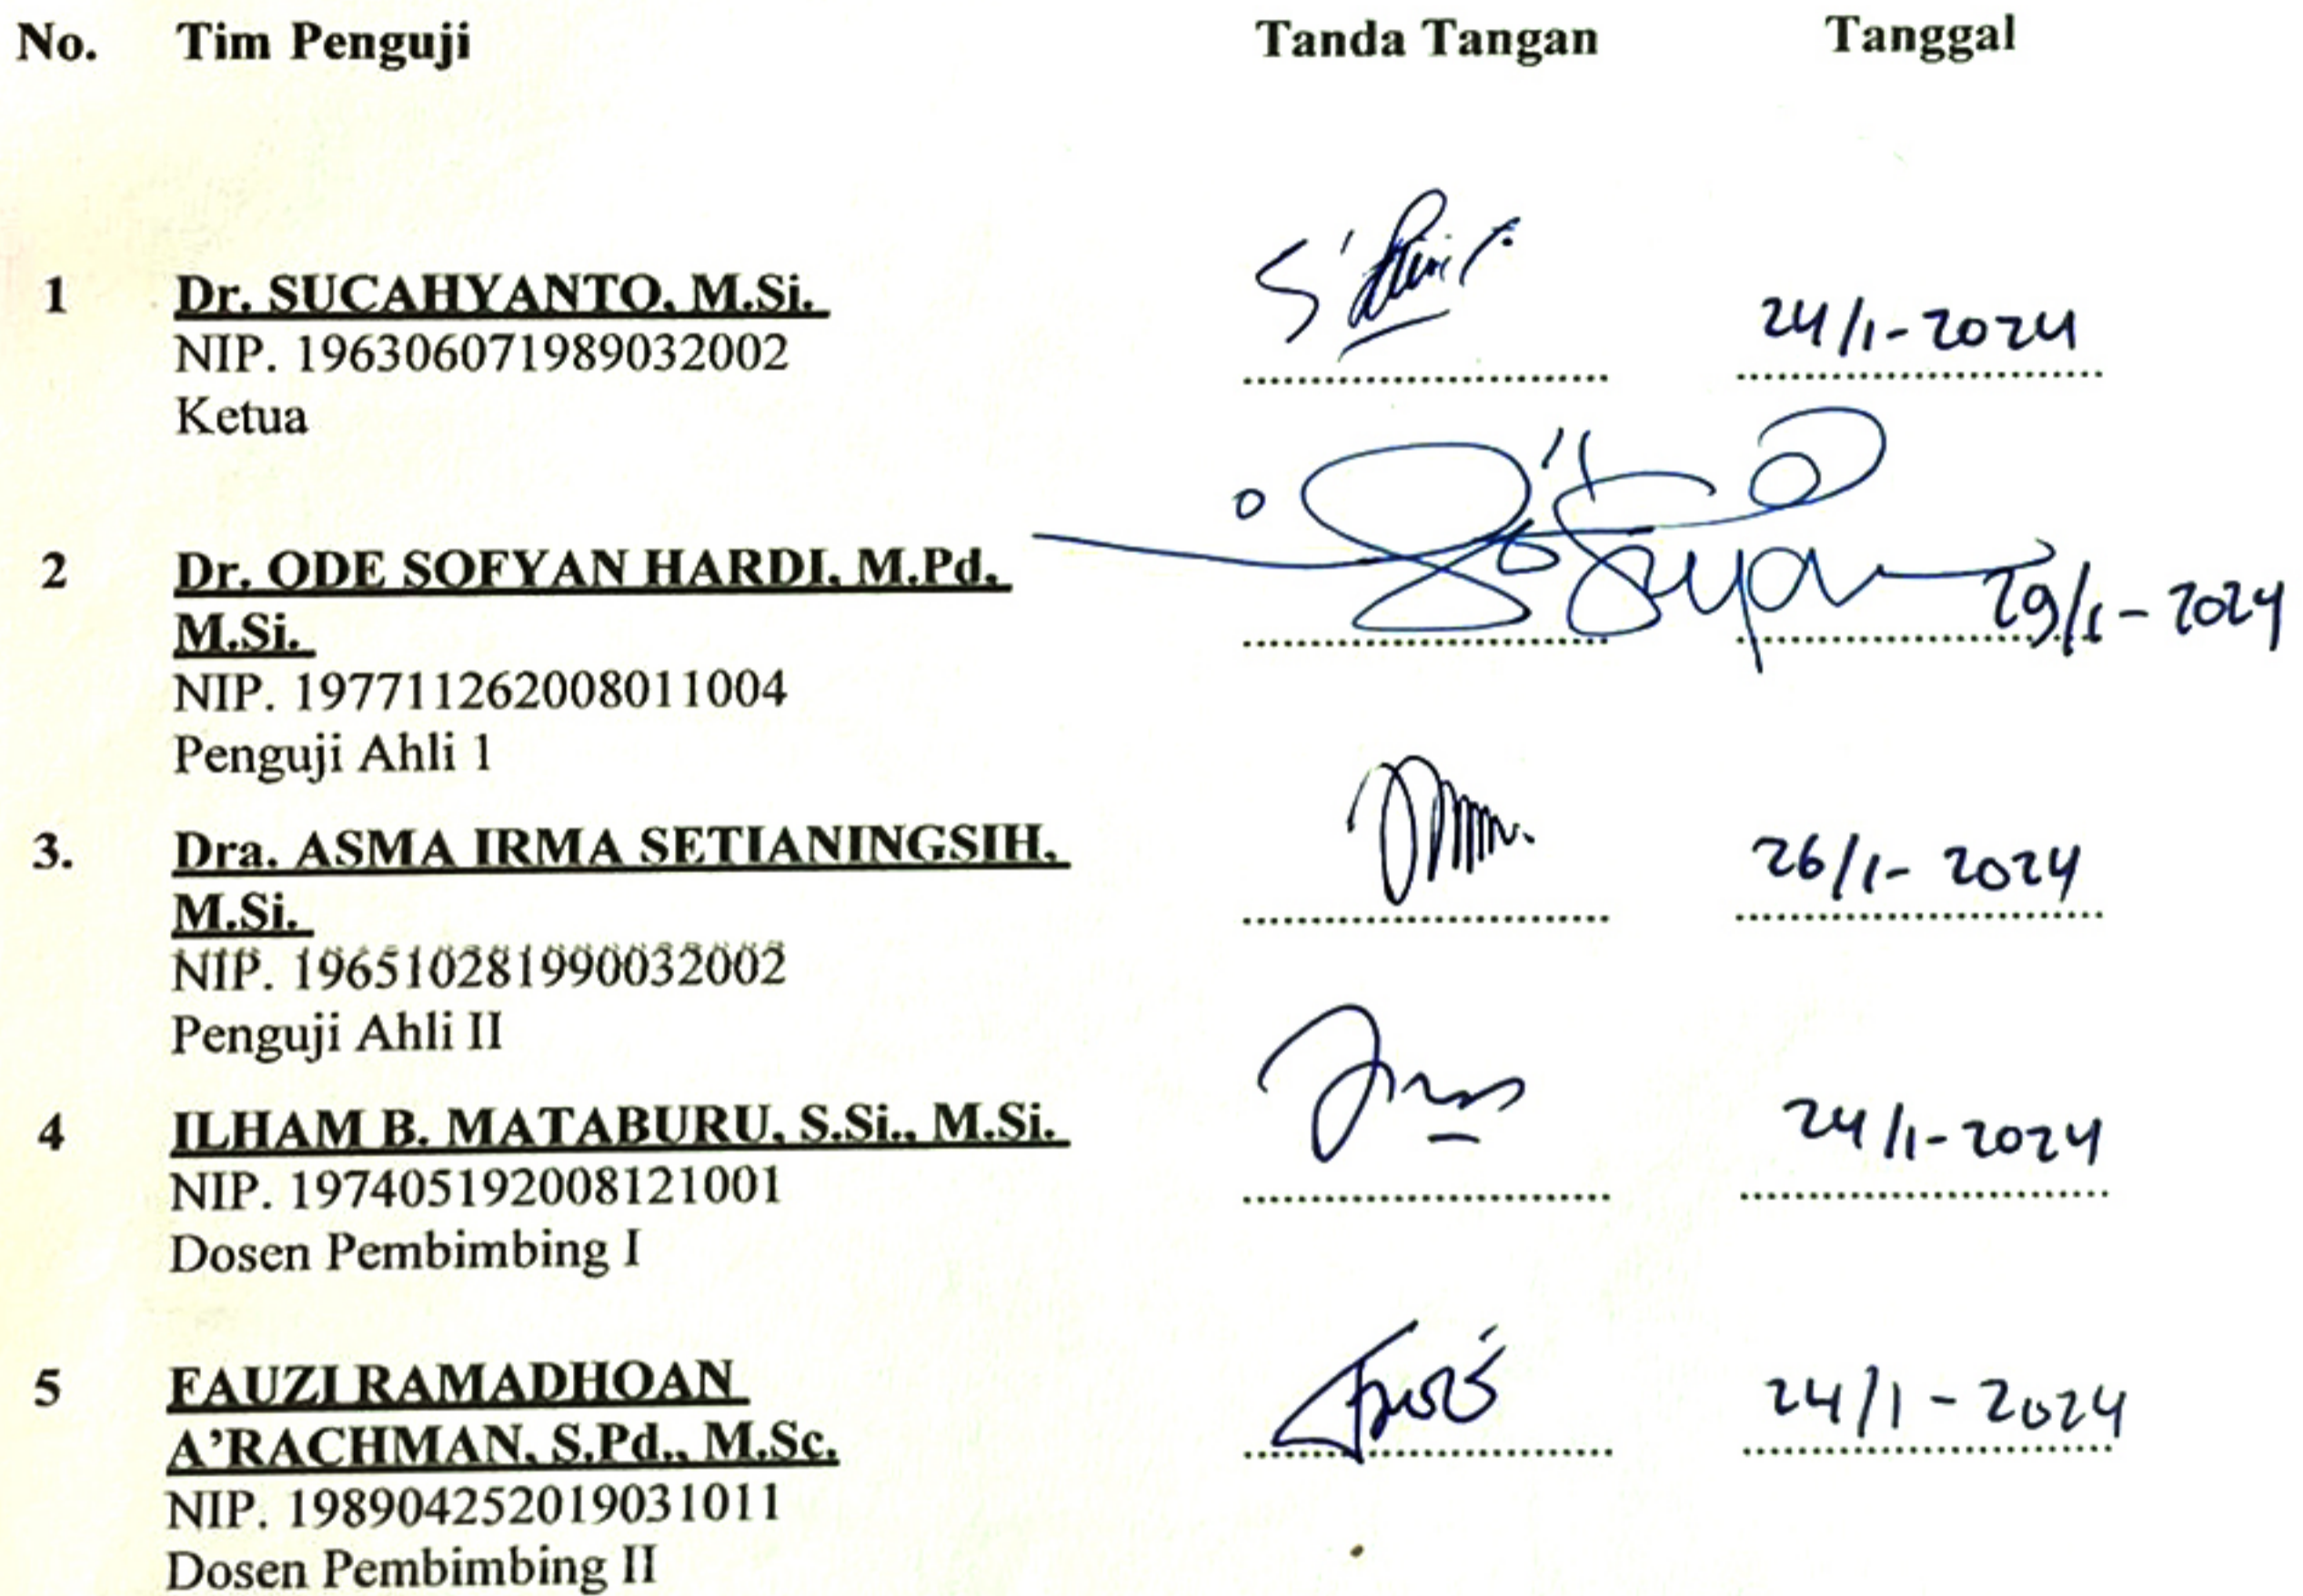 No. Tim Penguji Tanda Tangan Tanggal
1 Dr. SUCAHYANTO, M.Si.
NIP. 196306071989032002 24/1-2024
Ketua
2 Dr. ODE SOFYAN HARDI, M.Pd.
M.Si. 29/1-2024
NIP. 197711262008011004
Penguji Ahli 1
3. Dra. ASMA IRMA SETIANINGSIH,
M.Si. 26/1-2024
NIP. 196510281990032002
Penguji Ahli II
4 ILHAM B. MATABURU, S.Si., M.Si. 24/1-2024
NIP. 197405192008121001
Dosen Pembimbing I
5 FAUZI RAMADHOAN 24/1-2024
A’RACHMAN, S.Pd., M.Sc.
NIP. 198904252019031011
Dosen Pembimbing II